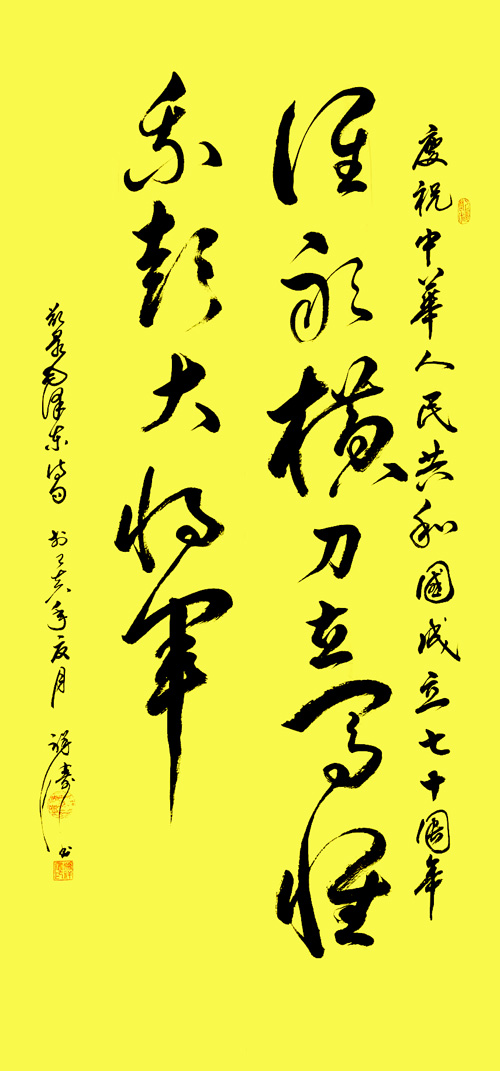 慶祝中華人民共和國成立七十週年
谁敢横刀立马惟
我彭大将军
敬录毛泽东诗句 於己亥年夏月 祥涛书